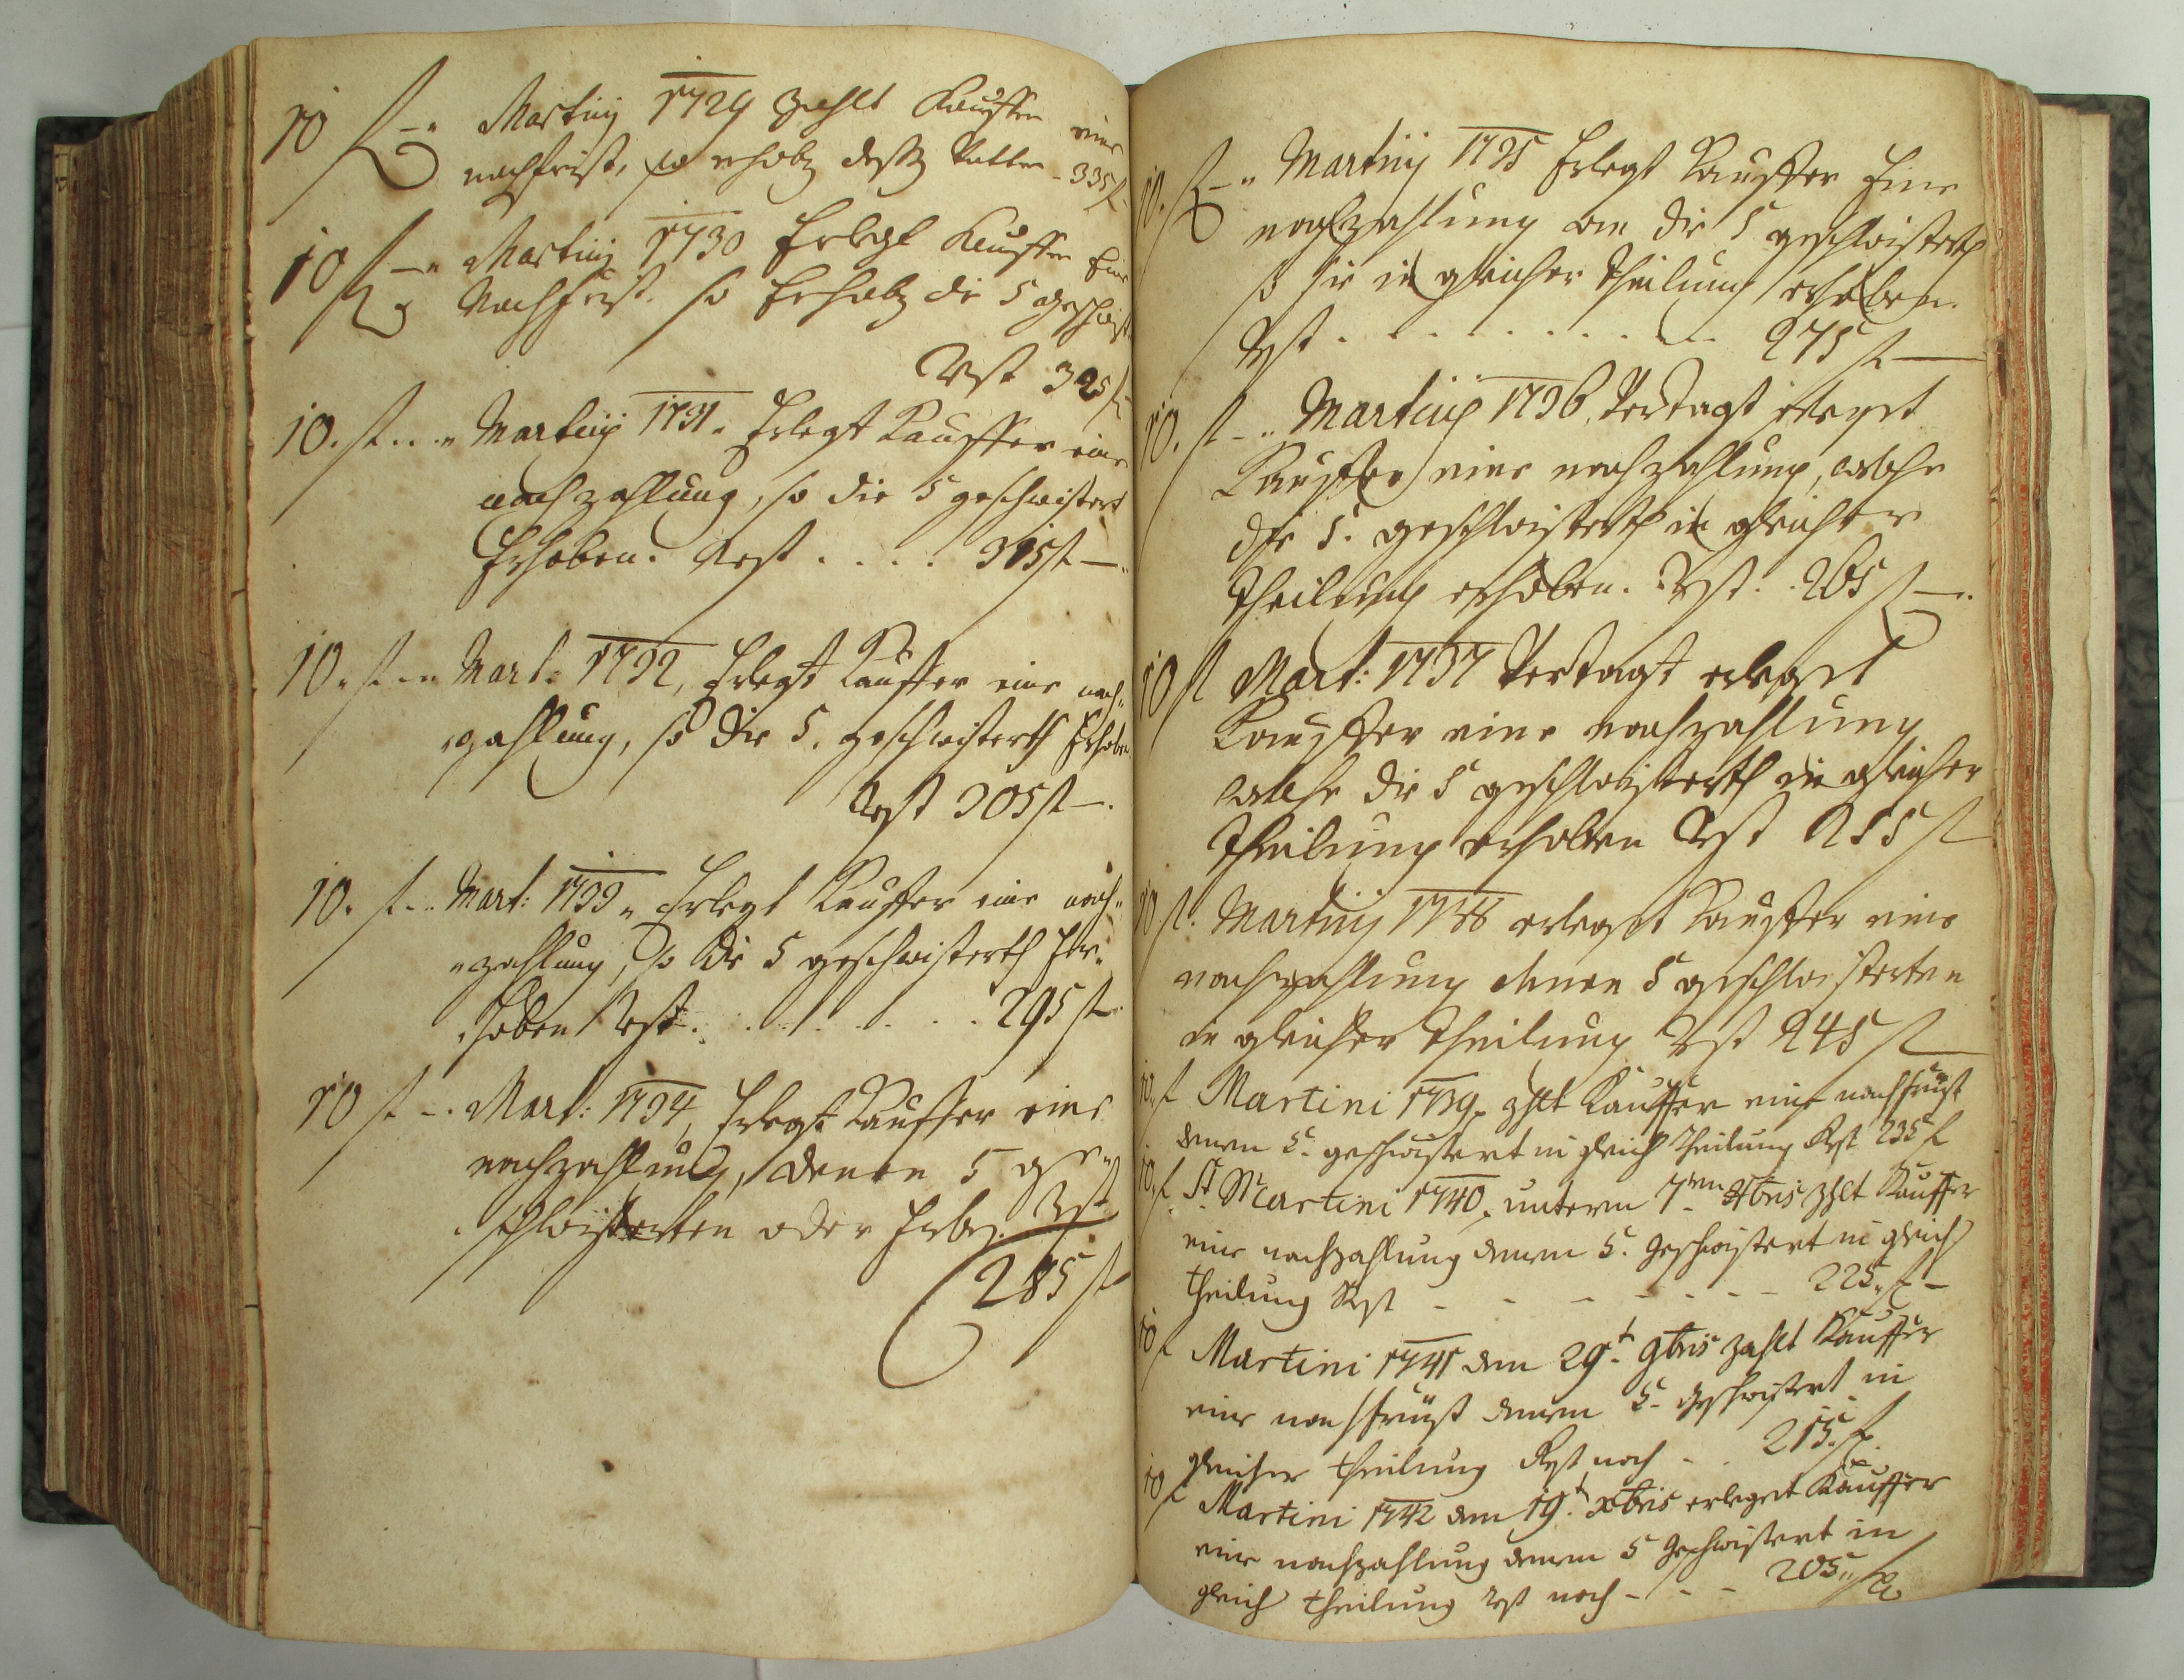 10 f – " Martinij 1729 zahlt Kauffer eine
nachfrist, so erhebt dess Vatter – 335 f
10 f – " Martinij 1730 Erlegt Kauffer Eine
Nachfrist. so Erhebt die 5 geschwist
Rest 325 f
10. f . . " Martinij 1731. Erlegt Kauffer eine
nachzahlung, so die 5 geschwistert
Erhoben. Rest . . . . 315 f –
10. f – " Mart: 1732, Erlegt Kauffer eine nach„
„zahlung, so die 5. geschwisterth Erhoben
Rest 305 f –.
10. f . . Mart: 1733 „ Erlegt Kauffer eine nach„
„zahlung, so die 5 geschwisterth Er„
„hoben Rest . . . . . . . 295 f –
10 f – . Mart: 1734, Erlegt Kauffer eine
nachzahlung, denen 5 ge„
„schwisterten oder Erben. Rst
285 f
10. f – " Martinij 1735 Erlegt Kauffer Eine
nachzahlung an die 5 geschwisterth
so sie in gleicher Theilung erhoben.
Rst . . . . . . . . 275 f —
10. f – " Martinij 1736, Vertagt erlegt
Kauffer eine nachzahlung, welche
die 5. geschwisterth in gleicher
Theilung erhoben. Rst. . 265 f –.
10 f Mart: 1737 Vertagt erleget
Kauffer eine nachzahlung
welche die 5 geschwisterth in gleicher
Theilung erhoben Rst 255 f
10 f. Martinij 1738 erleget Kauffer eine
nachzahlung denen 5 geschwisterten
in gleicher Theilung Rst 245 f
10. f Martini 1739. zhlt Kauffer eine nachfrist
denen 5. geschwistert in gleich Theilung Rst 235 f
10. f St Martini 1740. unterm 7ten Xbris zhlt Kauffer
eine nachzahlung denen 5. geschwistert in gleich
theilung Rst – – – – – – – 225. f –
10 f Martini 1741 den 29t. 9bris zahlt Kauffer
eine nachfrist denen 5. geschwistert in
gleicher theilung Rst noch – . 215. f.
10 f Martini 1742 den 19t. xbris erleget Kauffer
eine nachzahlung denen 5 geschwistert in
gleich theilung rst noch – – – 205. f